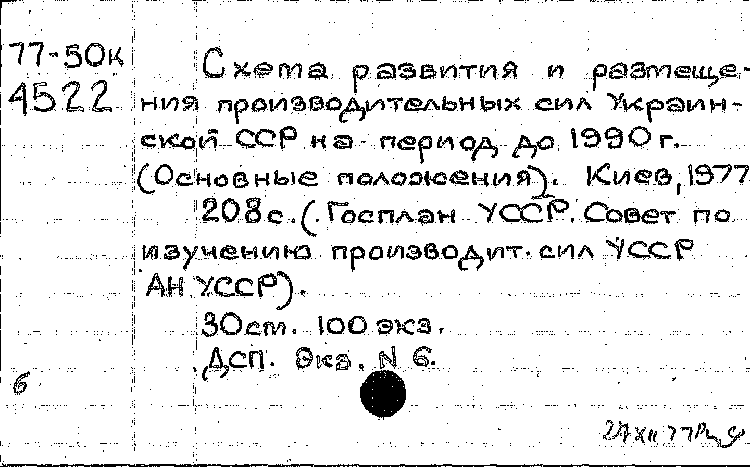 77-50к
4522
Схема развития и размеще-
ния производительных сил Украин-
ской ССР на период до 1990 г.
(Основные положения). Киев, 1977
208 с. (Госплан УССР. Совет по
изучению производит. сил УССР
АН УССР).
30 см. 100 экз.
ДСП. Экз. N 6.
6
27 XII 77